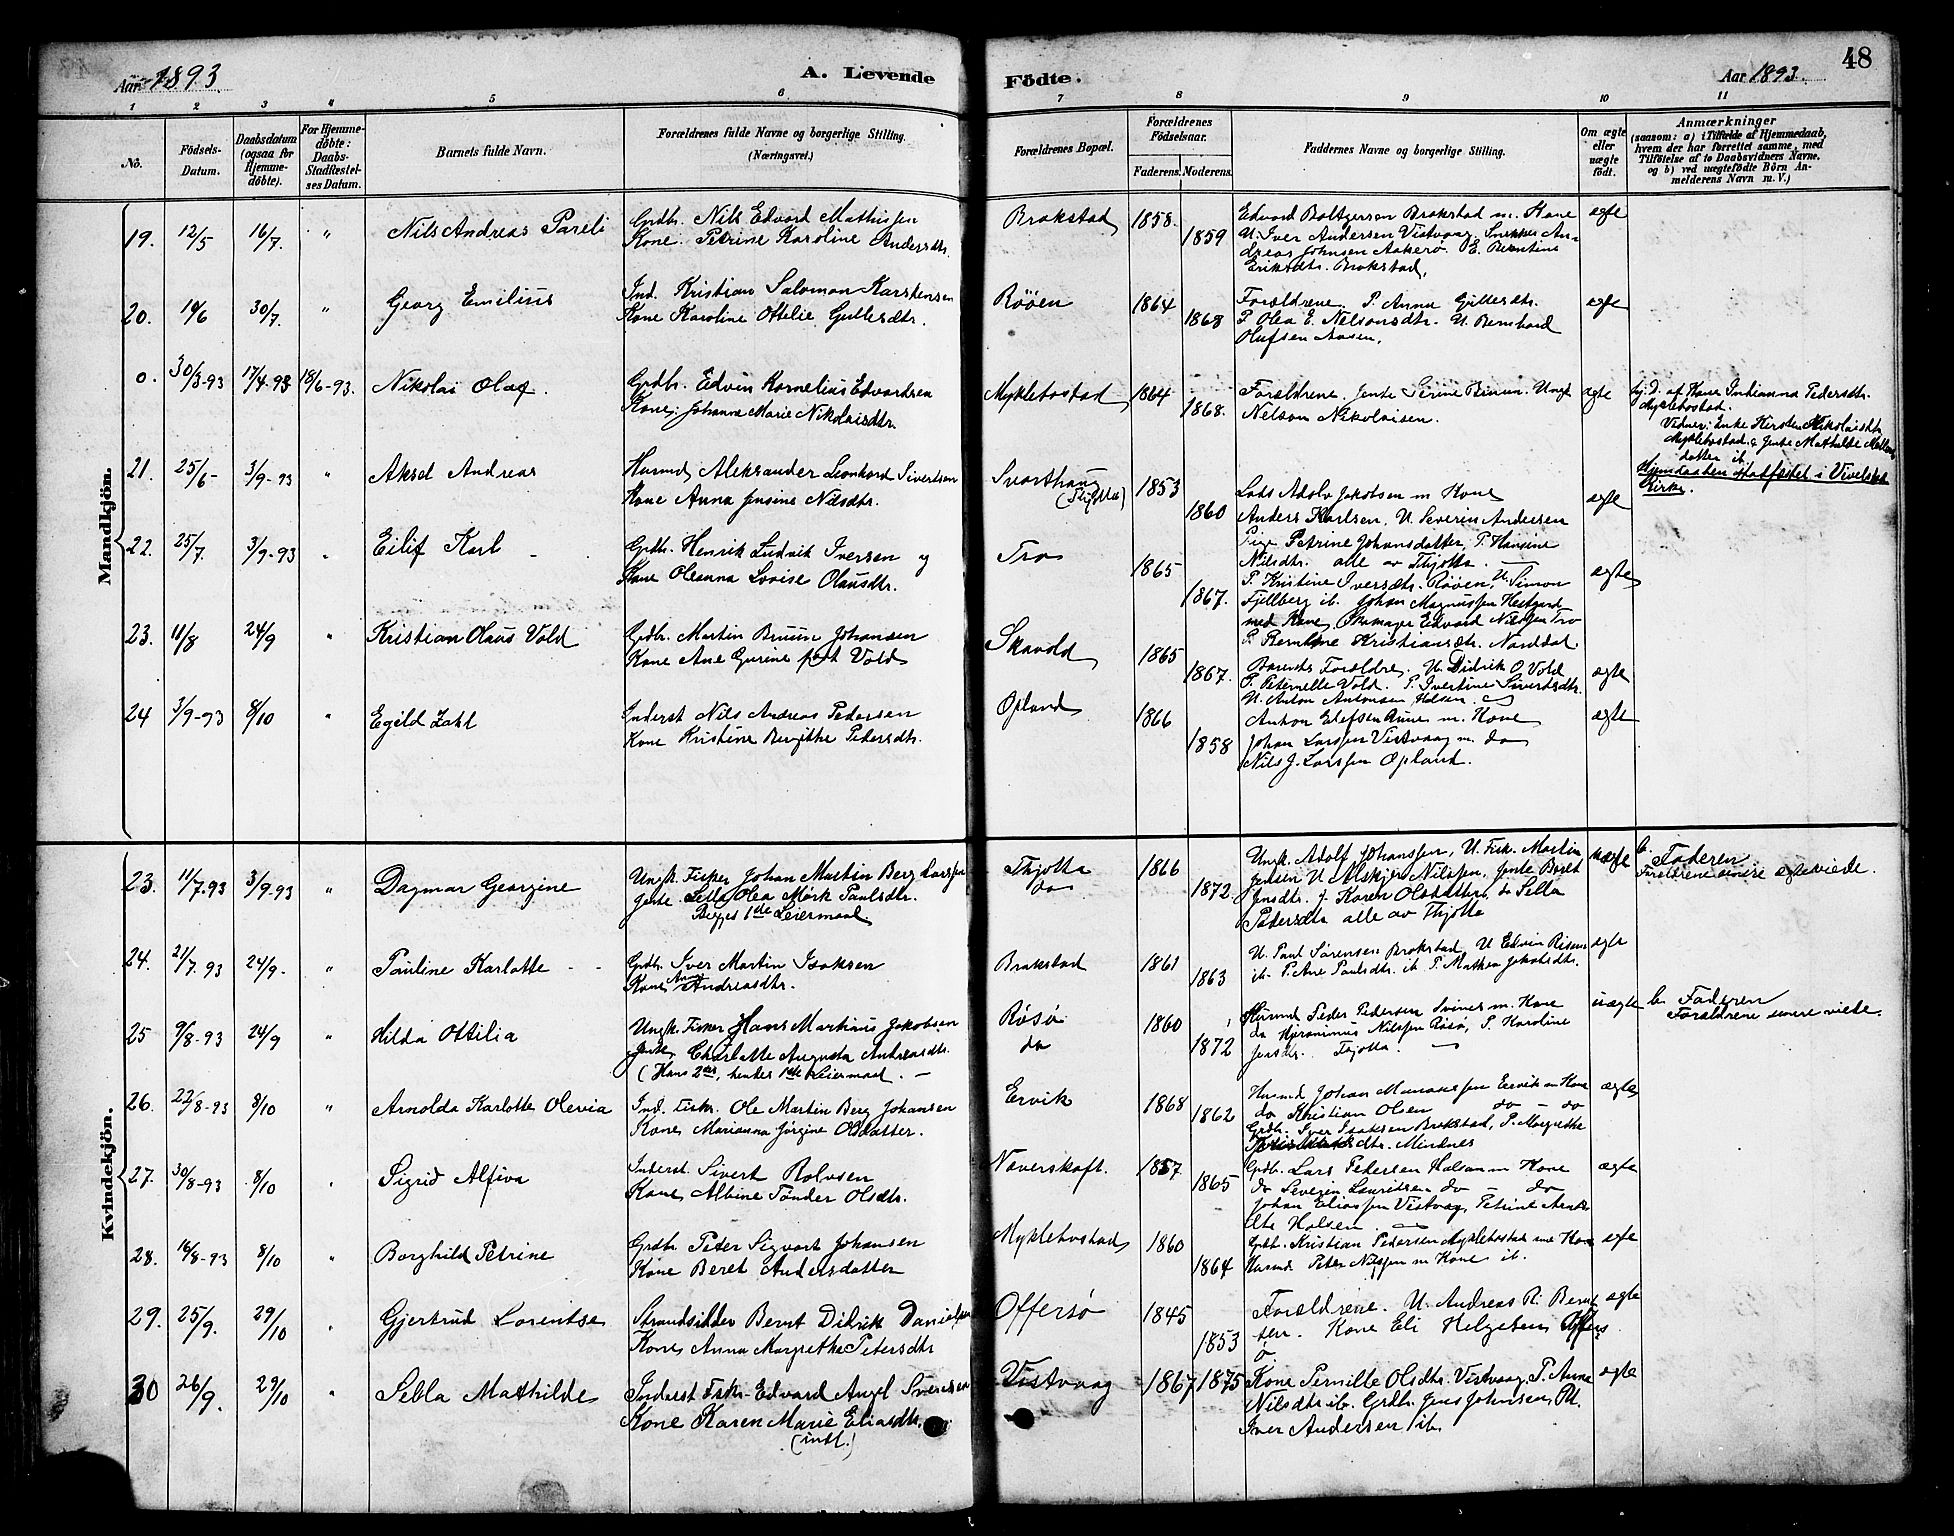 Aar 1893.
A. Levende
Födte.
Aar 1893.
48
1 2 3 4 5 6 7 8 9 10 11
No.
Födsels-
Datum.
Daabsdatum
(ogsaa for
Hjemme-
döbte).
For Hjemme-
döbte:
Daabs-
Stadfæstel-
ses Datum.
Barnets fulde Navn.
Forældrenes fulde Navne og borgerlige Stilling.
(Næringsvei.)
Forældrenes Bopæl.
Forældrenes
Födselsaar.
Faderens. Moderens.
Faddernes Navne og borgerlige Stilling.
Om ægte
eller
uægte
födt.
Anmærkninger
(saasom: a) i Tilfælde af Hjemmedaab,
hvem der har forrettet samme, med
Tilföielse af to Daabsvidners Navne.
og b) ved uægtefödte Börn An-
melderens Navn m. V.)
Mandkjön.
19. 12/5 16/7. " Nils Andreas Pareli
Grdbr. Nils Edvard Mathissen
Kone Petrine Karoline Andersdtr.
Brokstad 1858. 1859
Edvard Boltzersen Brokstad m. Kone
U. Iver Andersen Vistvaag. Snekker An-
dreas Johnsen Aakerø. E. Berntine
Eriksdtr. Brokstad.
ægte
20. 19/6 30/7. " Georg Emilius
Ind. Kristian Salomon Karstensen
Kone Karoline Ottelie Gullesdtr.
Røøen 1864 1868
Forældrene. P. Anna Gullesdtr.
P. Olea E. Nelsonsdtr. U. Bernhard
Olufsen Aasen.
ægte
0. 30/3-93 17/4-93 18/6-93. Nikolai Olaf.
Grdbr. Edvin Kornelius Edvardsen
Kone: Johanna Marie Nikolaisdtr.
Myklebostad 1864 1868.
Forældrene. Jente Serine Bruun. Ungk
Nelson Nikolaisen.
ægte
hj.d. af Kone Indianna Pedersdtr.
Myklebostad.
Vidner: Enke Kirsten Nikolaisdtr
Myklebostad & Jente Mathilde
datter ib.
Hjemdaaben stadfæstet i Vevelstad
Kirke.
21. 25/6- 3/9-93 " Aksel Andreas
Husmd Aleksander Leonhard Sivertsen
Kone Anna Jensine Nilsdtr.
Svarthaug
(Thjøtta) 1853 1860
Lods Adolv Jakobsen m Kone
Anders Karlsen. U. Severin Andersen
Pige Petrine Johansdatter, P. Hansine
Nilsdtr. alle av Thjøtta.
ægte
22. 25/7. 3/9-93 " Eilif Karl
Grdbr. Henrik Ludvik Iversen og
Kone Oleanna Lovise Olausdtr.
Tro 1865 1867.
P. Kristine Iversdtr. Røøen, U. Simon
Fjellberg ib. Johan Magnussen Hestgand
med Kone, Edvard Nilssen Tro
P. Kristiansdtr. Norddal.
ægte
23. 11/8 24/9 " Kristian Olaus Vold
Grdbr. Martin Bruun Johansen
Kone Ane Gurine født Vold
Skavold 1865 1867.
Barnets Forældre. U. Didrik O. Vold
P. Peternelle Vold. P. Ivertine Sivertsdtr.
U. Anton Antonsen Halsen.
ægte
24 3/9-93 8/10 " Egild Zahl
Inderst Nils Andreas Pedersen
Kone Kristine Bergithe Pedersdtr.
Opland 1866 1858
Anton Elefsen Aune m. Kone
Johan Larssen Vistvaag m. do
Nils J. Larssen Opland.
ægte
Kvindekjön.
23. 11/7.93 3/9-93 " Dagmar Georgine
Ungk. Fisker Johan Martin Berg Larssen
Jente Sella Olea Mørk Paulsdtr.
Begges 1ste Leiermaal
Thjøtta
do 1866 1872.
Ungk. Adolf Johanssen, U. Fisk. Martin
Jensen U. Nilssen, Jente Beret
Jensdtr. J. Karen Olsdatter, do Sella
Pedersdtr alle av Thjøtta
uægte
b. Faderen
Forældrene senere ægteviede.
24. 21/7.93 24/9- " Pauline Karlotte
Grdbr. Iver Martin Isaksen
Kone Ane Andreasdtr.
Brokstad 1861 1863
U. Paul Sørensen Brokstad, U Edvin Risen
ib. P. Ane Paulsdtr. ib P. Mathea Jakobsdtr.
ægte
25 9/8-93 24/9 " Hilda Ottilia
Ungk. Fisker Hans Martinus Jakobsen
Jente Charlotte Augusta Andreasdtr.
(Hans 2det, hendes 1ste Leiermaal.
Røsø
do 1860 1872
Husmd Peder Pedersen Svines m. Kone
do Hjeronimus Nilssen Røsø, P. Karoline
Jensdtr. Thjøtta.
uægte
b. Faderen
Forældrene senere viede.
26. 22/8-93 8/10 " Arnolda Karlotte Olevia
Ind. Fisk. Ole Martin Berg Johansen
Kone Marianna Jørgine Olsdatter.
Ervik 1868 1862
Husmd Johan Ervik m Kone
do Kristian Olsen do - do
Grdbr. Iver Isaksen Brokstad, P. Margrethe
dtr. Mindnes
ægte
27. 30/8-93 8/10 " Sigrid Alfiva
Inderst Sivert Rolvsen
Kone Albine Tønder Olsdtr.
Naverskaft. 1857 1865
Grdb. Lars Pedersen Halsan m Kone
do Severin Lauritsen do - do
Johan Eliassen Vistvaag, Petrine Arnt
dtr Halsen.
ægte
28. 16/8-93 8/10 " Borghild Petrine
Grdbr Peter Sigvart Johansen
Kone Beret Andersdatter
Myklebostad 1860 1864
Grdb. Kristian Pedersen Myklebostad me Kone
Husmd Peter Nilssen m Kone ib.
ægte
29. 25/9. 29/10 " Gjertrud Lorentse
Strandsidder Bernt Didrik Danielsen
Kone Anna Margrethe Petersdtr
Offersø 1845 1853
Forældrene. U. Andreas R. Bernt
sen. Kone Eli Helgesen Offers
ø
ægte
30 26/9. 29/10 " Sella Mathilde
Inderst Fisk. Edvard Angel Svendsen
Kone Karen Marie Eliasdtr.
(indl.)
Vistvaag 1867 1875
Kone Pernille Olsdtr. Vistvaag, P. Anne
Nilsdtr ib. Grdb. Jens Johnsen, Rd.
Iver Andersen ib.
ægte